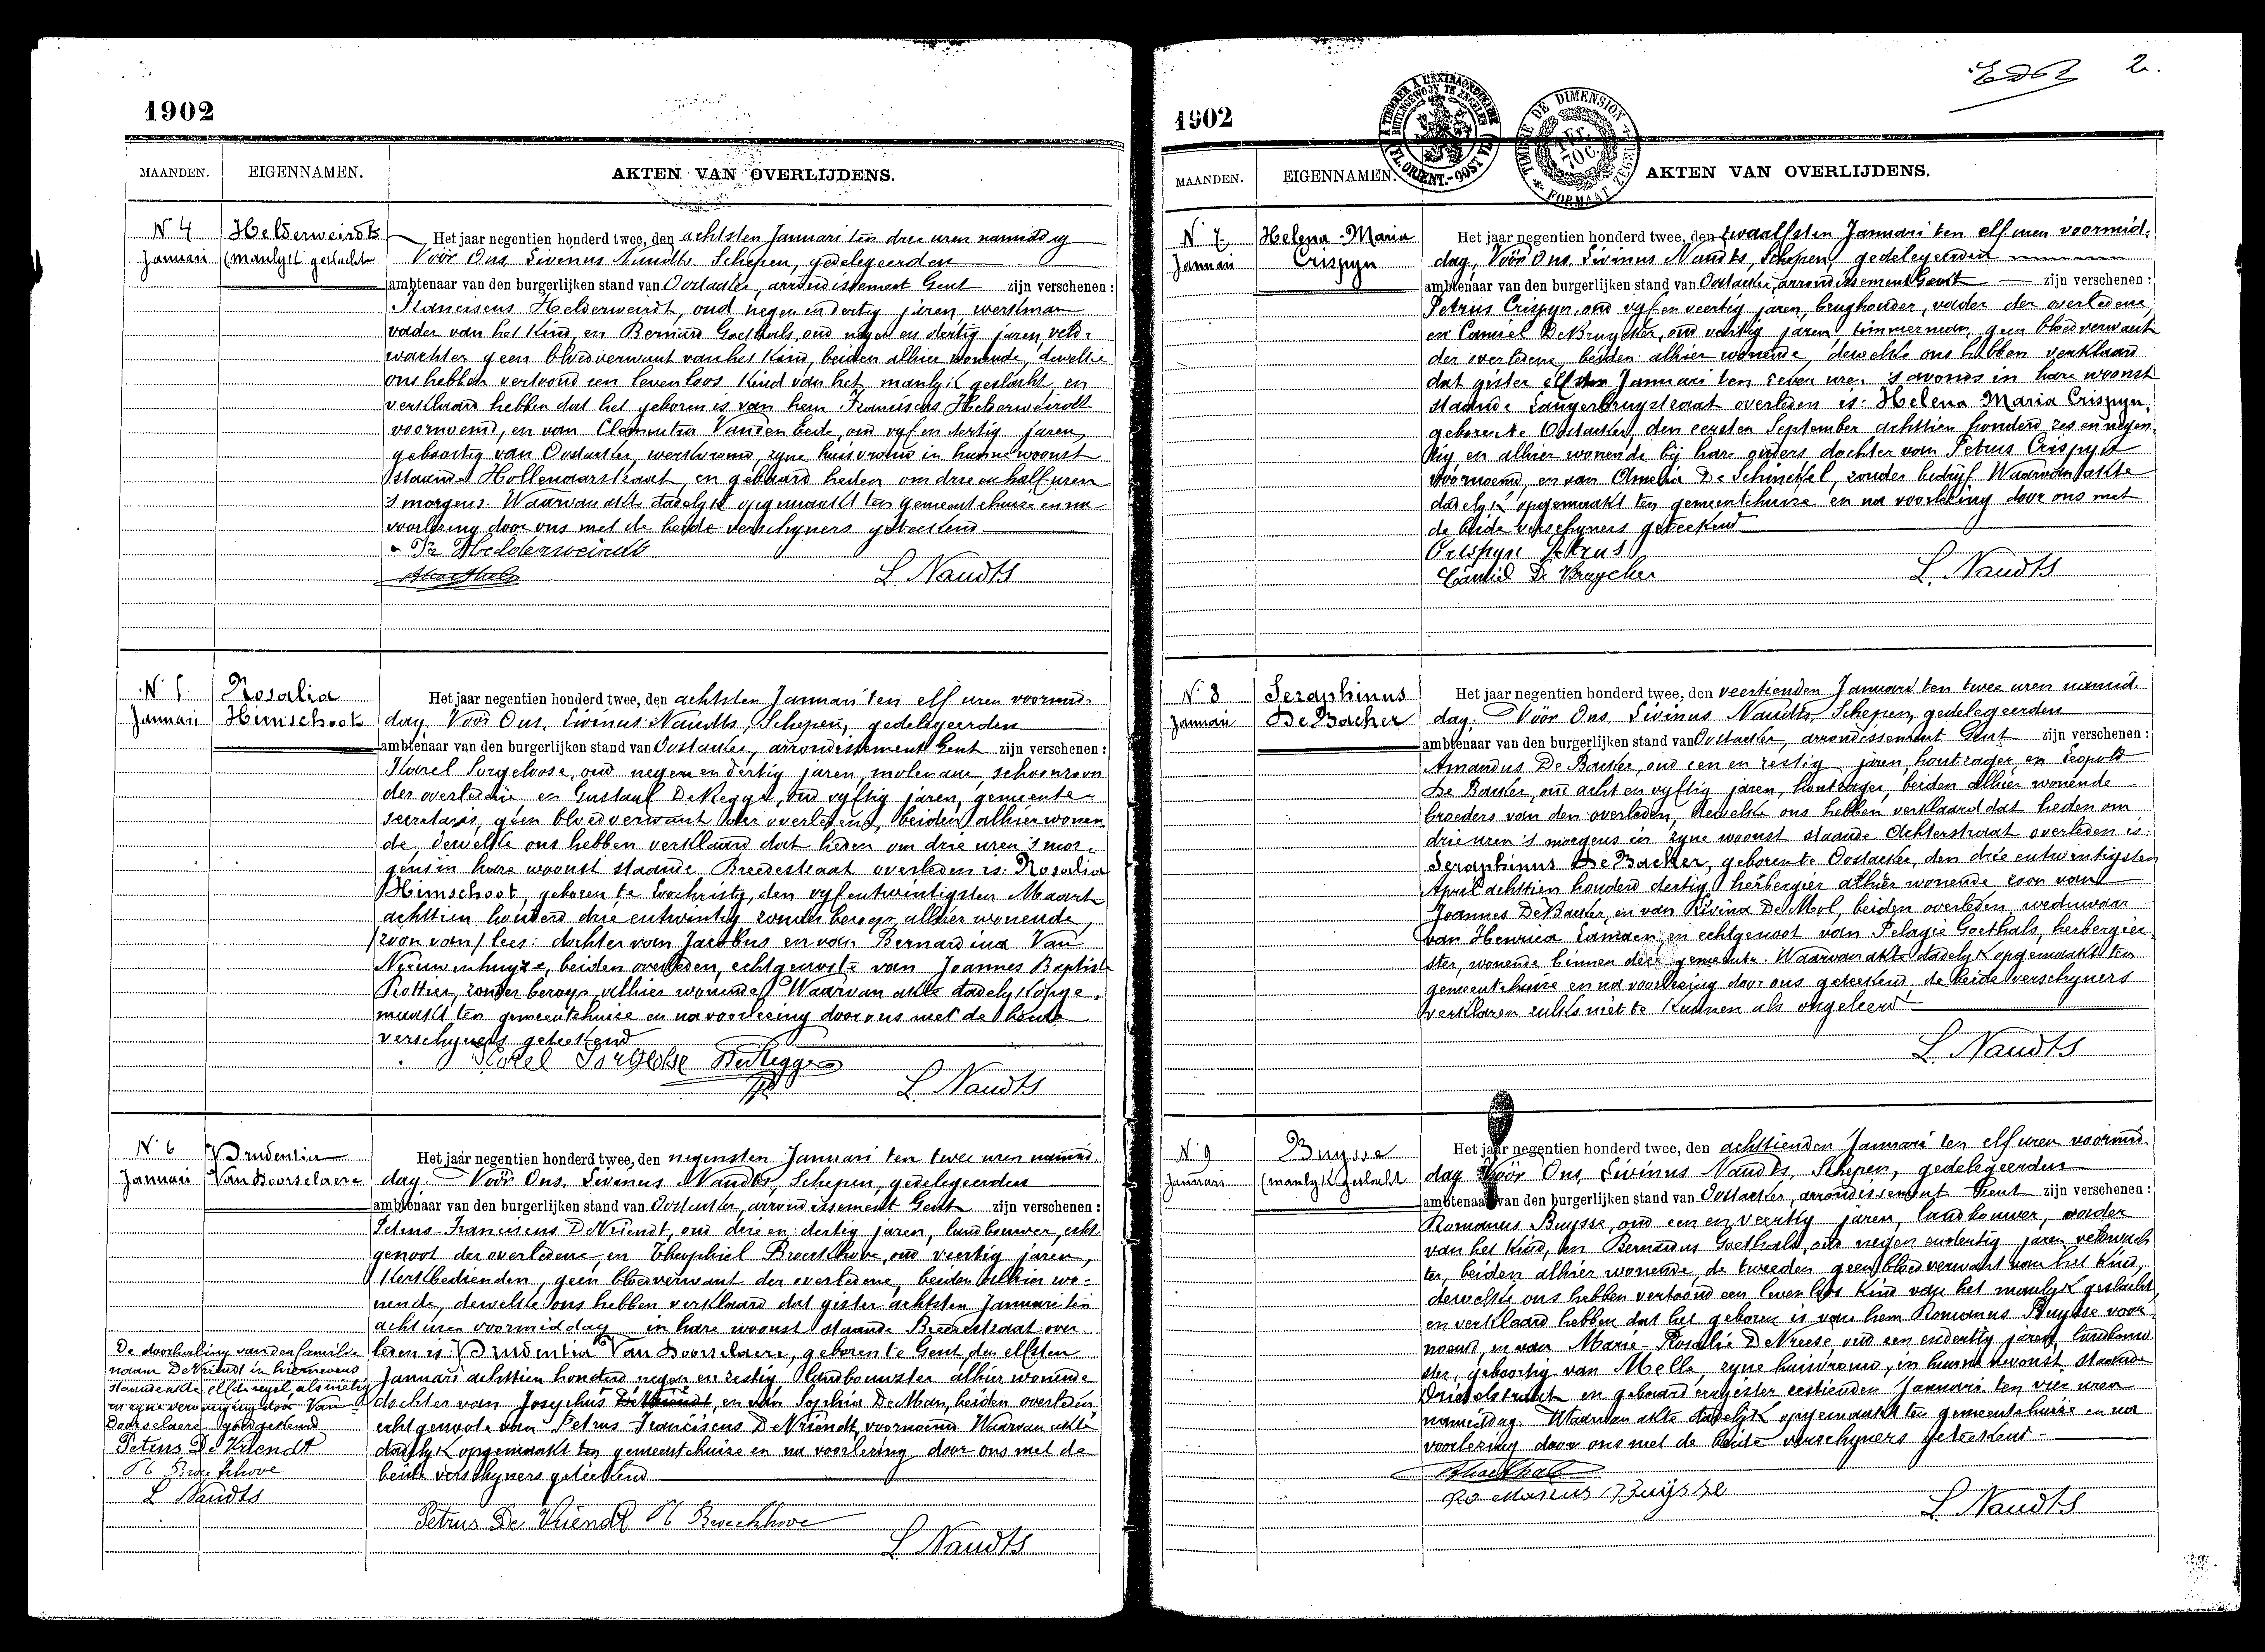 1902
MAANDEN. EIGENNAMEN. AKTEN VAN OVERLIJDENS.
N 4 Januari
Helderweirdt (manlijk geslacht
Het jaar negentien honderd twee, den achtsten Januari ten drie uren namiddag
Vóór Ons, Livinus Naudts Schepen, gedelegeerden
ambtenaar van den burgerlijken stand van Oostacker, arrondissement Gent zijn verschenen:
Franciscus Helderweirdt, oud negen en dertig jaren, werkman
vader van het kind, en Bernard Goethals, oud negen en dertig jaren, veld-
wachter geen bloedverwant van het kind, beiden alhier wonende, dewelke
ons hebben vertoond een levenloos kind van het manlijk geslacht, en
verklaard hebben dat het geboren is van hem Franciscus Helderweirdt
voornoemd, en van Clementia Vanden Eede, oud vyf en dertig jaren,
geboortig van Oostacker, werkvrouw, zyne huisvrouw in hunne woonst
staande Hollenaarstraat, en gebaard heden om drie en half uren
's morgens. Waarvan akte dadelyk opgemaakt ten gemeentehuize en na
voorlezing door ons met de beide verschyners geteekend
Fr Helderweirdt
BGoethals L. Naudts
N. 5 Januari
Rosalia Himschoot
Het jaar negentien honderd twee, den achtsten Januari ten elf uren voormid-
dag Vóór Ons, Livinus Naudts, Schepen, gedelegeerden
ambtenaar van den burgerlijken stand van Oostacker, arrondissement Gent zijn verschenen:
Karel Sorgeloose, oud negen en dertig jaren, molenaar schoonzoon
der overledene en Gustaaf DeKegge, oud vyftig jaren, gemeente-
secretaris, geen bloedverwant der overledene, beiden alhier wonen
de, dewelke ons hebben verklaard dat heden om drie uren 's mor-
gens in hare woonst staande Breedestraat overleden is: Rosalia
Himschoot, geboren te Loochristy, den vyf entwintigsten Maart
achttien honderd drie entwintig zonder beroep alhier wonende,
(zoon van) lees: dochter van Jacobus en van Bernardina Van
Nieuwenhuyze, beiden overleden, echtgenoote van Joannes Baptist
Rottier, zonder beroep, alhier wonende. Waarvan akte dadelyk opge-
maakt ten gemeentehuize en na voorlezing door ons met de beide
verschyners geteekend
Karel Sorgeloose DeKegge
L. Naudts
N. 6 Januari
Prudentia Van Doorselaere
Het jaar negentien honderd twee, den negensten Januari ten twee uren namid
dag. Vóór Ons, Livinus Naudts, Schepen, gedelegeerden
ambtenaar van den burgerlijken stand van Oostacker, arrondissement Gent zijn verschenen:
Petrus Franciscus DeVriendt, oud drie en dertig jaren, landbouwer, echt
genoot der overledene, en Theophiel Broeckhove, oud veertig jaren,
kerkbedienden, geen bloedverwant der overledene, beiden alhier wo-
nende, dewelke ons hebben verklaard dat gister achtsten Januari ten
acht uren voormiddag in hare woonst staande Breedestraat over
leden is: Prudentia Van Doorselaere, geboren te Gent den elfsten
Januari achttien honderd negen en zestig landbouwster alhier wonende
dochter van Josephus DeVriendt, en van Sophia DeMan, beiden overleden
echtgenoote van Petrus Franciscus DeVriendt, voornoemd. Waarvan akte
dadelyk opgemaakt ten gemeentehuize en na voorlezing door ons met de
beide verschyners geteekend
De doorhaling van den familie
naam DeVriendt in hiernevens
staande akte elfde regel, als nietig
en zyne vervanging door Van
Doorselaere goedgekeurd
Petrus De Vriendt
Th Broeckhove
L Naudts
Petrus De Vriendt Th Broeckhove
L Naudts
2.
1902
A TIMBRER A L'EXTRAORDINAIRE
BUITENGEWOON TE ZEGELEN
FL. ORIENT.-OOST VL.
TIMBRE DE DIMENSION
FORMAAT ZEGEL
MAANDEN. EIGENNAMEN. AKTEN VAN OVERLIJDENS.
N 7. Januari
Helena-Maria Crispyn
Het jaar negentien honderd twee, den twaalfsten Januari ten elf uren voormid-
dag, Vóór Ons, Livinus Naudts, Schepen, gedelegeerden
ambtenaar van den burgerlijken stand van Oostacker, arrondissement Gent zijn verschenen:
Petrus Crispyn, oud vyf en veertig jaren, brughouder, vader der overledene,
en Camiel DeBruycker, oud veertig jaren timmerman, geen bloedverwant
der overledene, beiden alhier wonende, dewelke ons hebben verklaard
dat gister elfsten Januari ten zeven uren 's avonds in hare woonst
staande Langerbrugstraat overleden is: Helena Maria Crispyn,
geboren te Oostacker, den eersten September achttien honderd zes en negen
tig en alhier wonende bij hare ouders dochter van Petrus Crispyn
voornoemd, en van Amelia De Schinckel, zonder bedryf. Waarvan akte
dadelyk opgemaakt ten gemeentehuize en na voorlezing door ons met
de beide verschyners geteekend
Crispyn Petrus
Camiel De Bruycker L. Naudts
N. 8 Januari
Seraphinus DeBacker
Het jaar negentien honderd twee, den veertienden Januari ten twee uren namid
dag. Vóór Ons, Livinus Naudts, Schepen, gedelegeerden
ambtenaar van den burgerlijken stand van Oostacker, arrondissement Gent zijn verschenen:
Amandus De Backer, oud een en zestig jaren houtzager, en Leopold
De Backer, oud acht en vyftig jaren, houtzager, beiden alhier wonende
broeders van den overleden, dewelke ons hebben verklaard dat heden om
drie uren 's morgens in zyne woonst staande Achterstraat overleden is:
Seraphinus DeBacker, geboren te Oostacker, den drie entwintigsten
April achttien honderd dertig herbergier alhier wonende zoon van
Joannes DeBacker, en van Livina DeMeyl, beiden overleden, weduwaar
van Henrica Laman, en echtgenoot van Pelagie Goethals, herbergier-
ster, wonende binnen deze gemeente. Waarvan akte dadelyk opgemaakt ten
gemeentehuize en na voorlezing door ons geteekend, de beide verschyners
verklaren zulks niet te kunnen als ongeleerd
L. Naudts
N. 9 Januari
Buysse (manlyk geslacht
Het jaar negentien honderd twee, den achttienden Januari ten elf uren voormid-
dag Vóór Ons, Livinus Naudts, Schepen, gedelegeerden
ambtenaar van den burgerlijken stand van Oostacker, arrondissement Gent zijn verschenen:
Romanus Buysse, oud een en veertig jaren, landbouwer, vader
van het kind, en Bernardus Goethals, oud negen endertig jaren veldwach
ter, beiden alhier wonende, de tweeden geen bloedverwant van het kind,
dewelke ons hebben vertoond een levenloos kind van het manlyk geslacht,
en verklaard hebben dat het geboren is van hem Romanus Buysse voor
noemd, en van Marie-Rosalie DeNeese oud een endertig jaren, landbouw
ster, geboortig van Melle, zyne huisvrouw, in hunne woonst staande
Drieselstraat en gebaard eergister zestienden Januari ten vier uren
namiddag. Waarvan akte dadelyk opgemaakt ten gemeentehuize en na
voorlezing door ons met de beide verschyners geteekend
BGoethals
Romanus Buysse L. Naudts